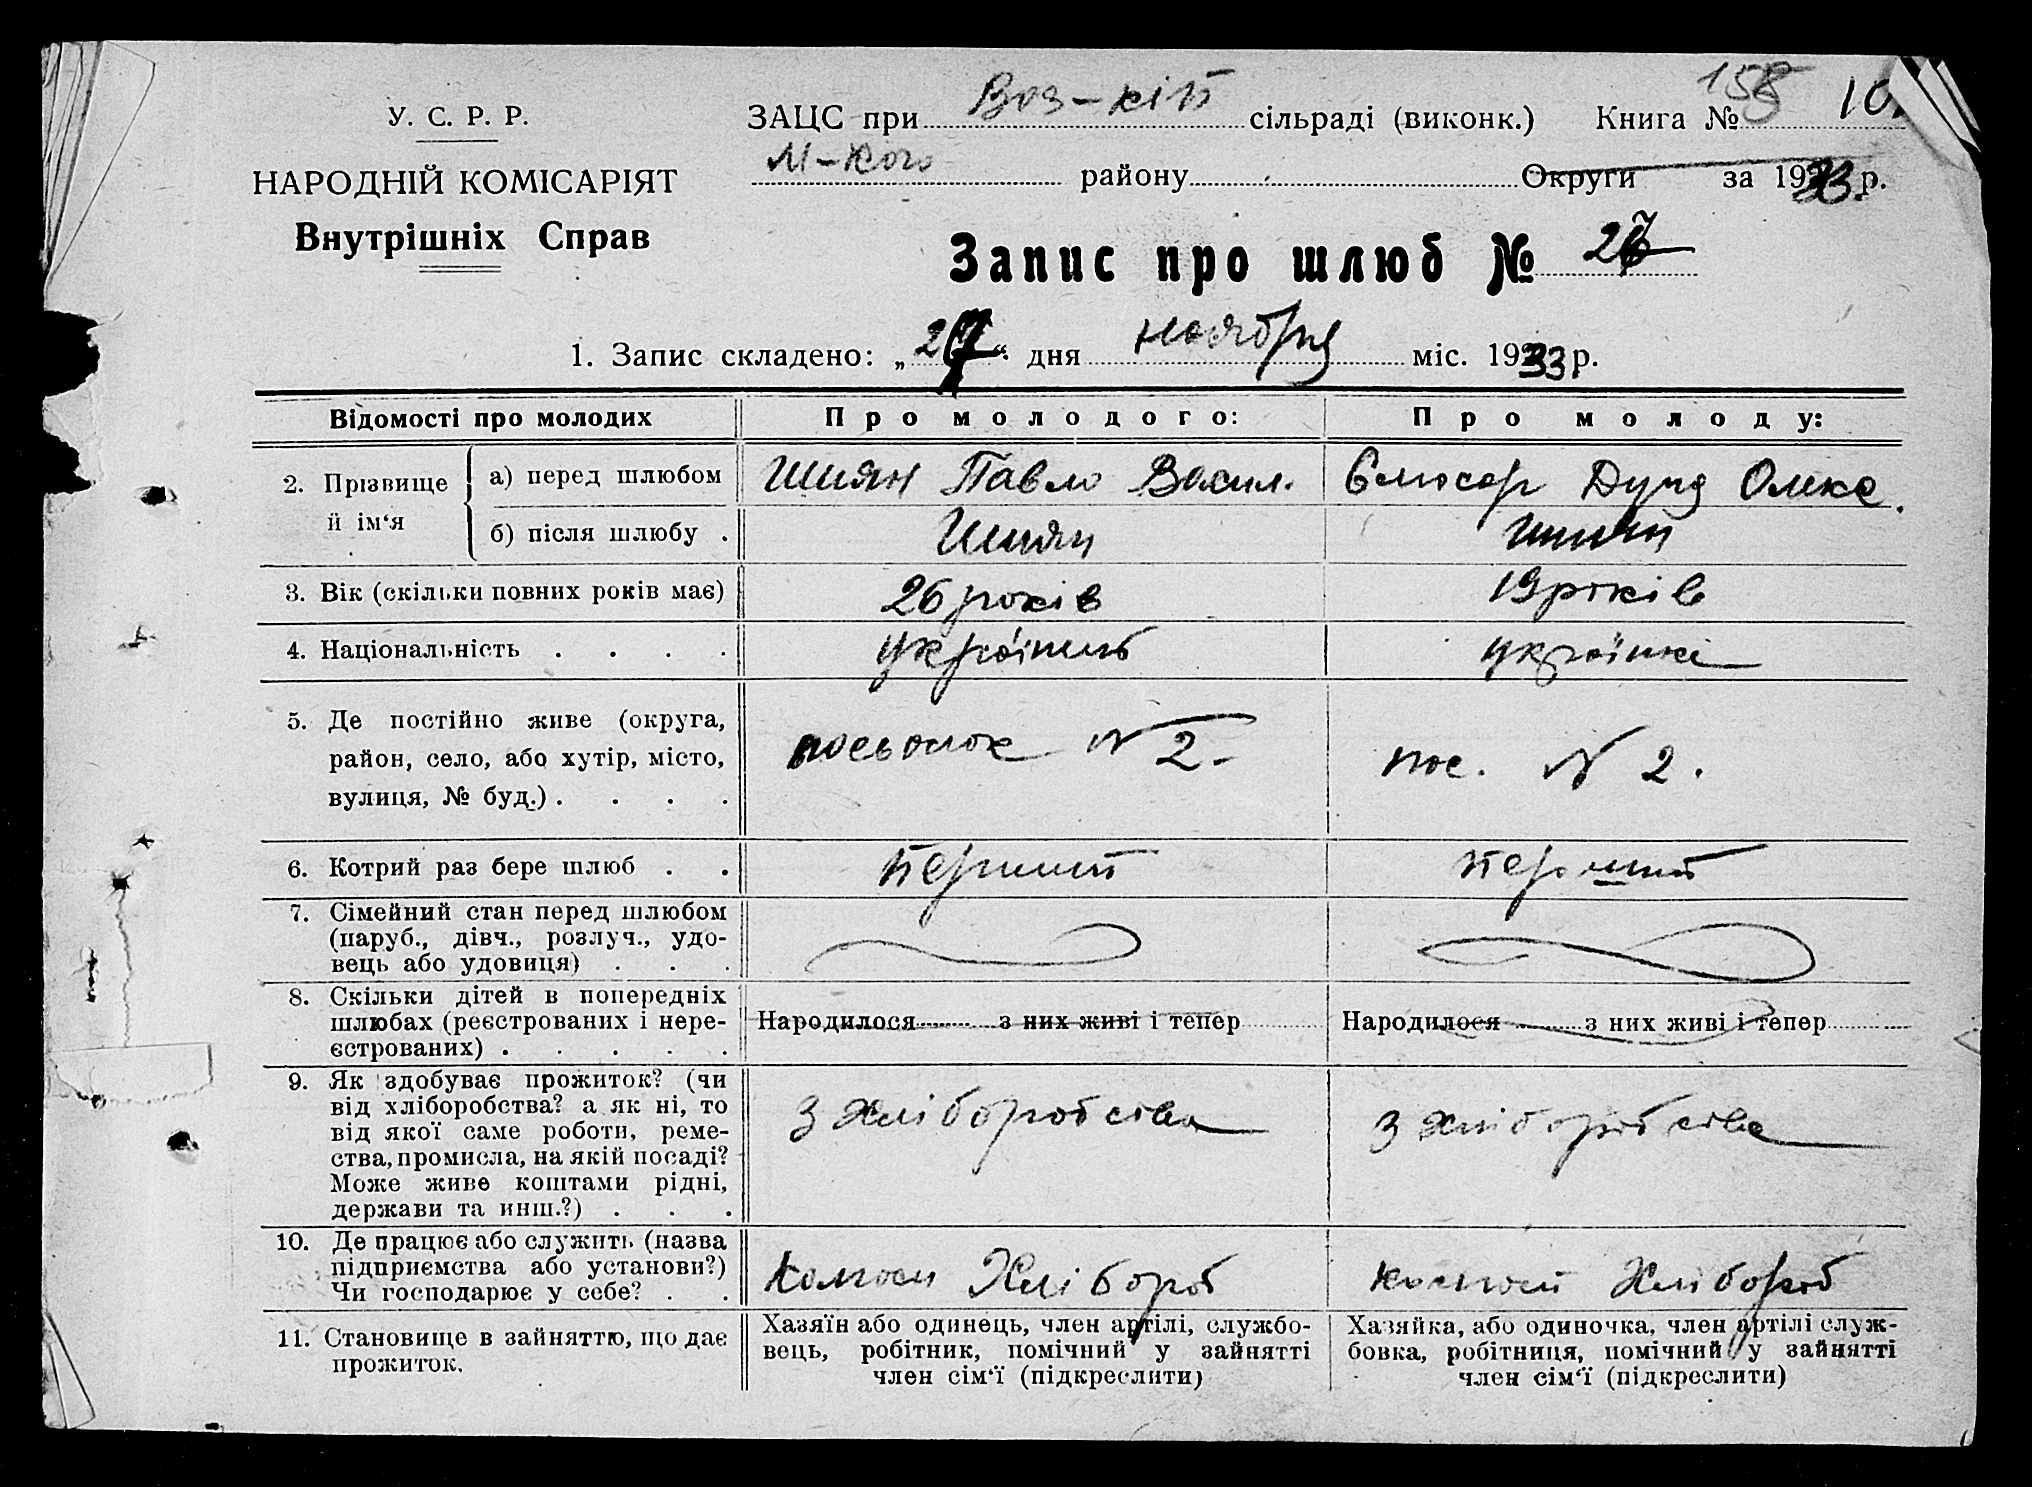 158 10
У. С. Р. Р.
ЗАЦС при Воз-кій сільраді (виконк.) Книга №
М-кого району Округи за 1933 р.
НАРОДНІЙ КОМІСАРІЯТ
Внутрішніх Справ
Запис про шлюб № 27
1. Запис складено: „27“ дня ноября міс. 1933 р.
Відомості про молодих
Про молодого:
Про молоду:
2. Прізвище й ім‘я
а) перед шлюбом
Шиян Павло Васил.
Слюсар Олекс.
б) після шлюбу .
Шиян
Шиян
3. Вік (скільки повних років має)
26 років
19 років
4. Національність . . . .
українець
українка
5. Де постійно живе (округа,
район, село, або хутір, місто,
вулиця, № буд.) . . . .
посьолок № 2.
пос. № 2.
6. Котрий раз бере шлюб . .
перший
перший
7. Сімейний стан перед шлюбом
(паруб., дівч., розлуч., удо-
вець або удовиця) . . .
8. Скільки дітей в попередніх
шлюбах (реєстрованих і нере-
єстрованих) . . . . .
Народилося з них живі і тепер
Народилося з них живі і тепер
9. Як здобуває прожиток? (чи
від хліборобства? а як ні, то
від якої саме роботи, реме-
ства, промисла, на якій посаді?
Може живе коштами рідні,
держави та инш.?) . . .
З хліборобства
З хліборобства
10. Де працює або служить (назва
підприємства або установи?)
Чи господарює у себе? . .
колгосп Хлібороб
колгосп Хлібороб
11. Становище в зайняттю, що дає
прожиток.
Хазяїн або одинець, член артілі, службо-
вець, робітник, помічний у зайнятті
член сім‘ї (підкреслити)
Хазяйка, або одиночка, член артілі служ-
бовка, робітниця, помічний у зайнятті
член сім‘ї (підкреслити)